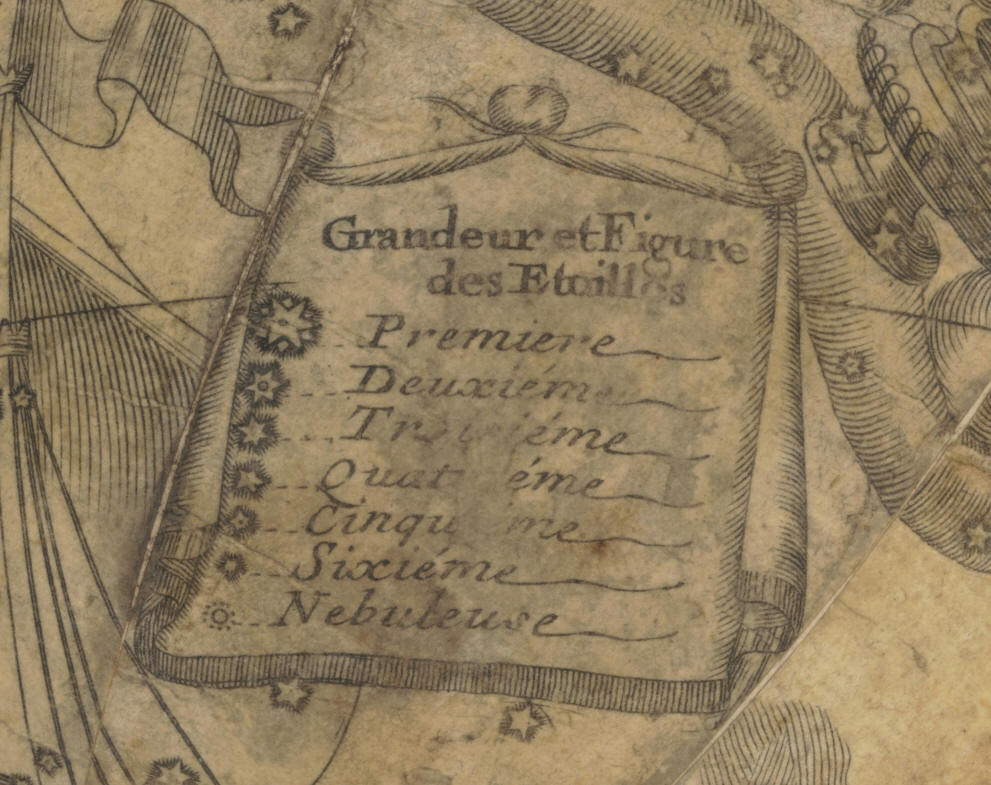 Grandeur et Figure
des Etoilles
Premiere
Deuxiéme
Troisiéme
Quat éme
Cinqu ime
Sixiéme
Nebuleuse